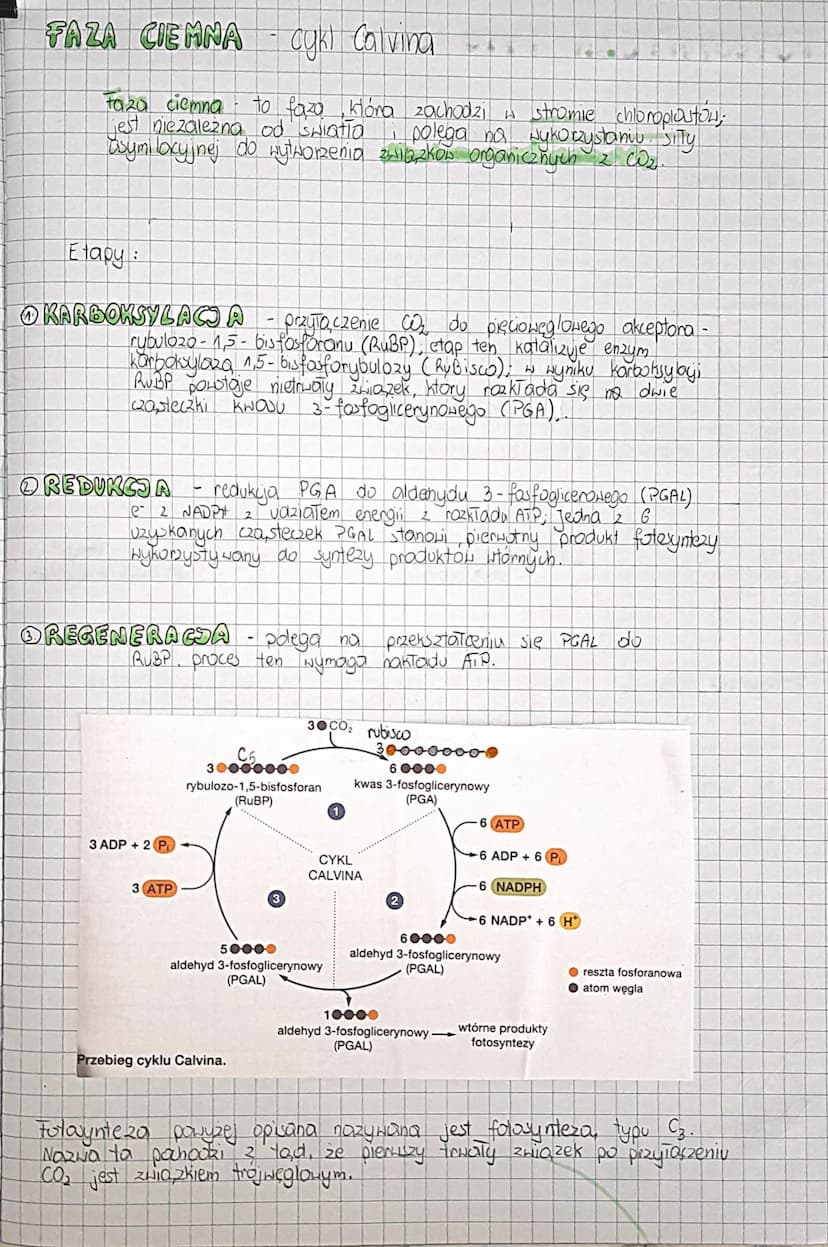 FAZA CIEMNA - cykl Calvina
Faza ciemna - to faza, która zachodzi w stromie chloroplastów;
jest niezależna od światła i polega na wykorzystaniu siły
asymilacyjnej do wytworzenia związków organicznych z CO₂.
Etapy:
① KARBOKSYLACJA - przyłączenie CO₂ do pięciowęglowego akceptora -
rybulozo-1,5-bisfosforanu (RuBP); etap ten katalizuje enzym
karboksylaza 1,5-bisfosforybulozy (Rybisco); w wyniku karboksylacji
RuBP powstaje nietrwały związek, który rozkłada się na dwie
cząsteczki kwasu 3-fosfoglicerynowego (PGA).
② REDUKCJA - redukcja PGA do aldehydu 3-fosfoglicerowego (PGAL)
e⁻ z NADPH z udziałem energii z rozkładu ATP; Jedna z 6
uzyskanych cząsteczek PGAL stanowi pierwotny produkt fotosyntezy
wykorzystywany do syntezy produktów wtórnych.
③ REGENERACJA - polega na przekształceniu się PGAL do
RuBP. proces ten wymaga nakładu ATP.
3 CO₂
rubisco
3
C5
3
6
rybulozo-1,5-bisfosforan
(RuBP)
kwas 3-fosfoglicerynowy
(PGA)
1
6 ATP
3 ADP + 2 Pᵢ
6 ADP + 6 Pᵢ
CYKL
CALVINA
3 ATP
6 NADPH
3
2
6 NADP⁺ + 6 H⁺
5
aldehyd 3-fosfoglicerynowy
(PGAL)
6
aldehyd 3-fosfoglicerynowy
(PGAL)
reszta fosforanowa
atom węgla
1
aldehyd 3-fosfoglicerynowy
(PGAL)
wtórne produkty
fotosyntezy
Przebieg cyklu Calvina.
Fotosynteza powyżej opisana nazywana jest fotosyntezą typu C₃.
Nazwa ta pochodzi z tąd, że pierwszy trwały związek po przyłączeniu
CO₂ jest związkiem trójwęglowym.